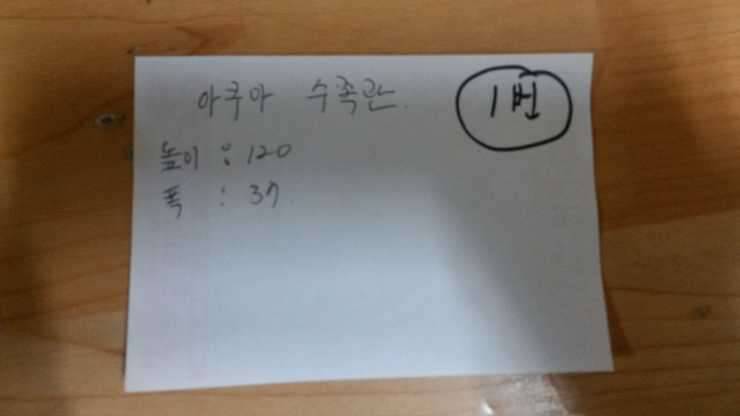 아쿠아 수족관. 1번
높이 : 120
폭 : 37